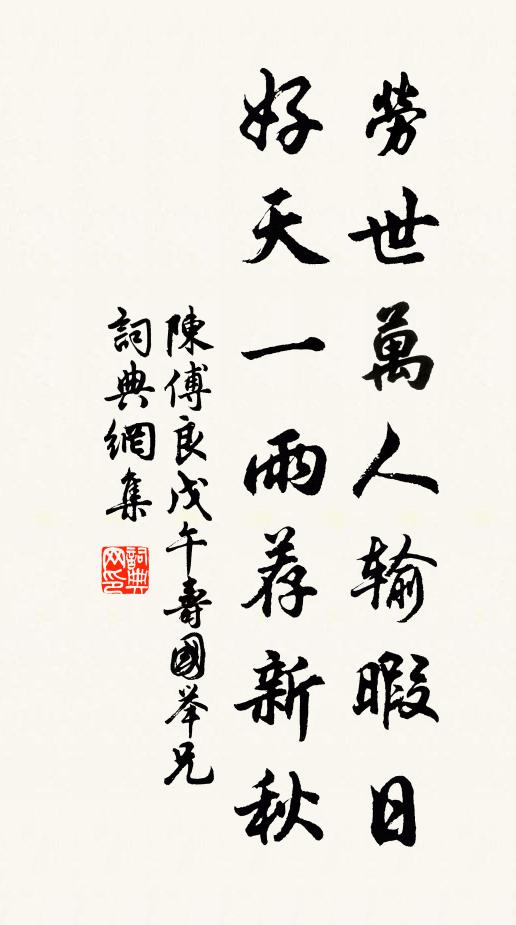 勞世萬人输暇日
好天一雨荐新秋
陳傅良戊午壽國举兄
詞典網集
詞典网印